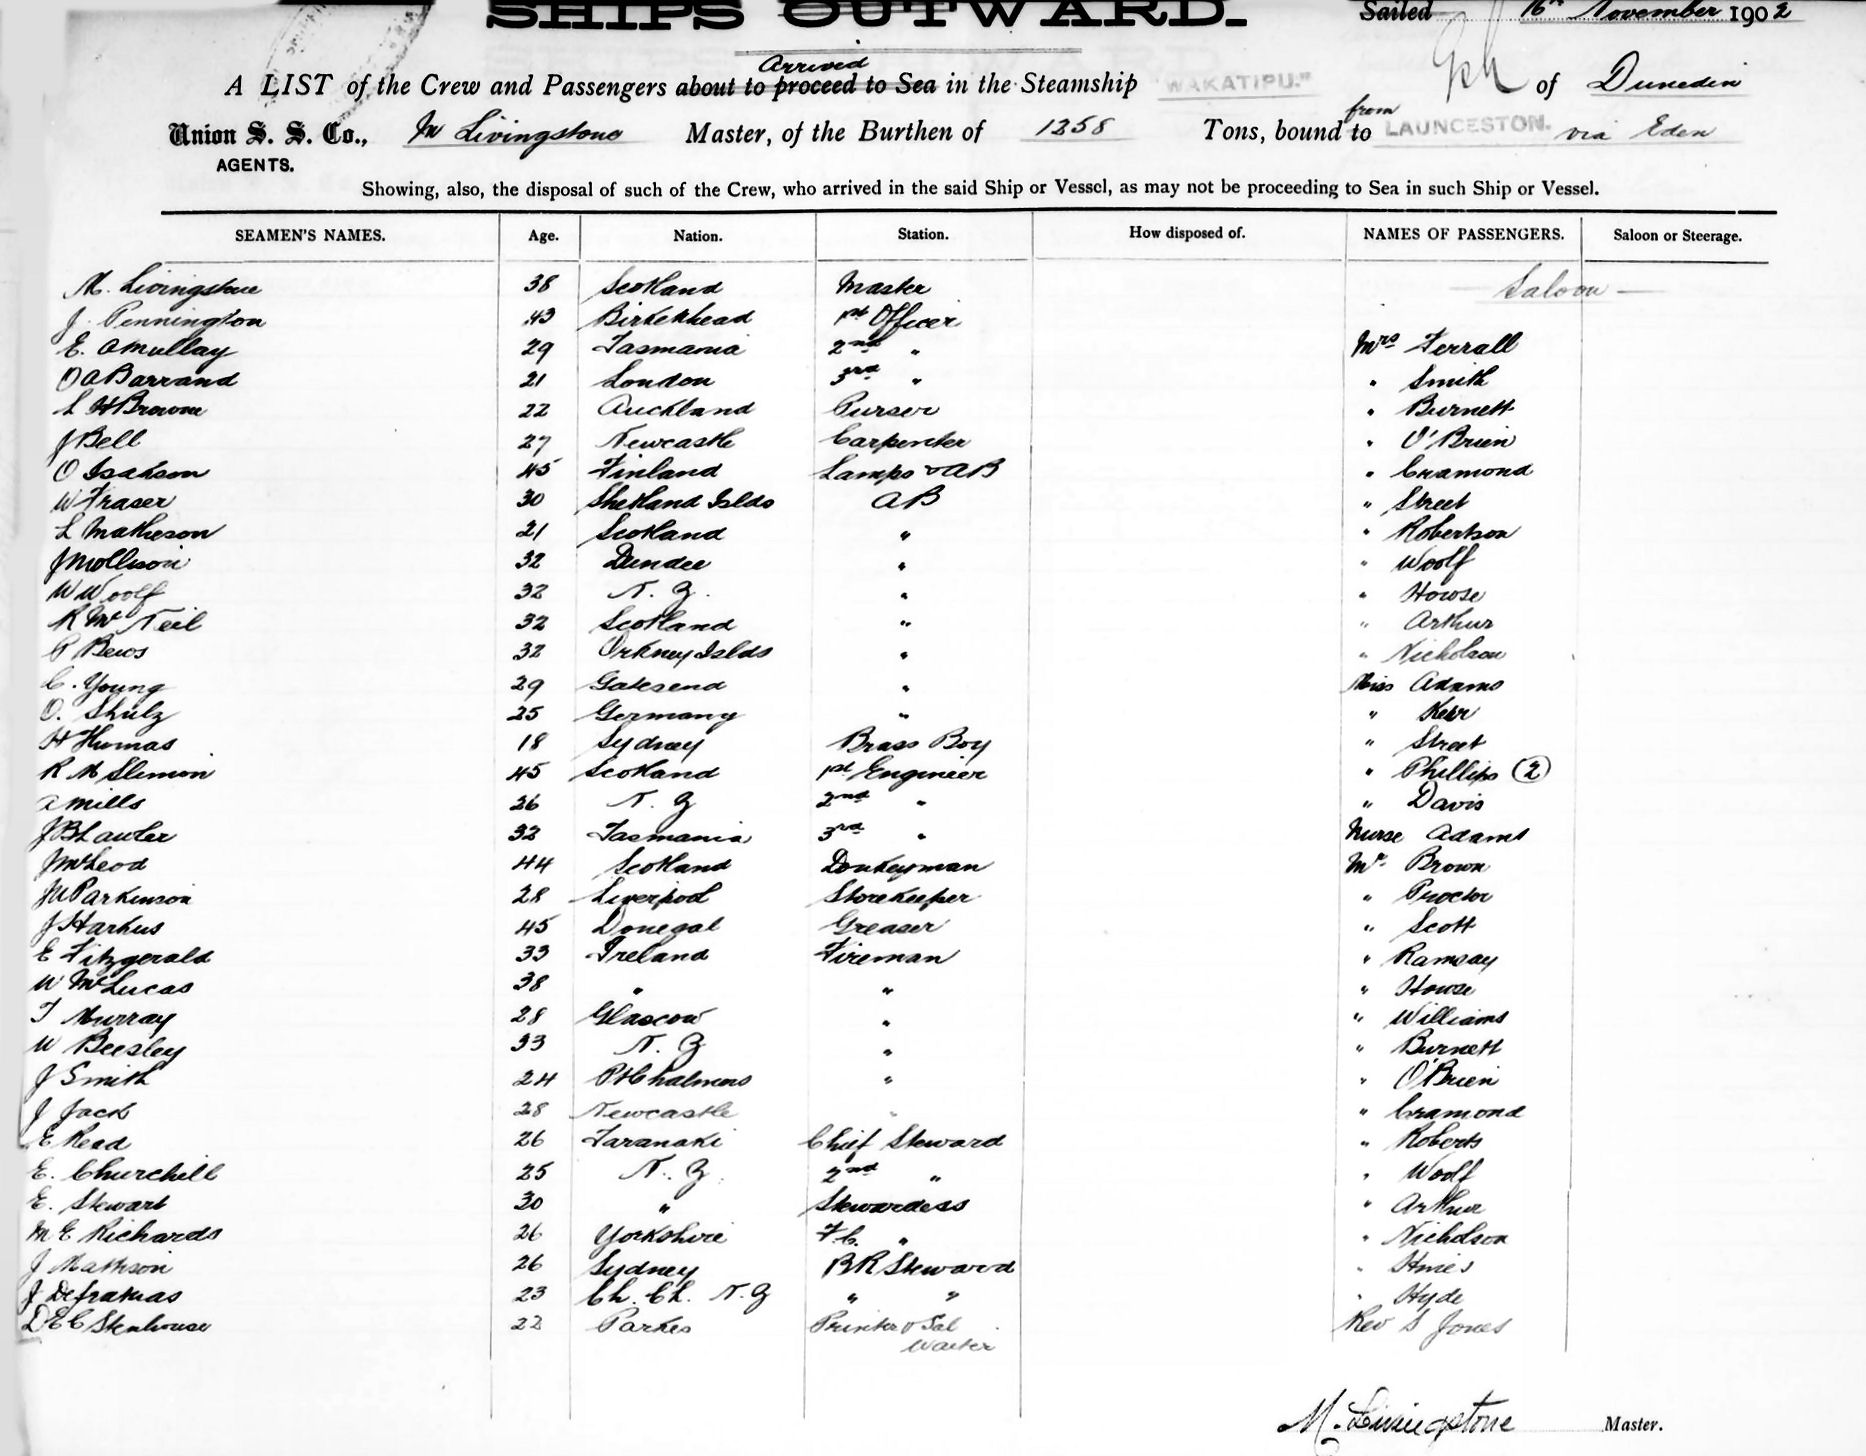 SHIPS OUTWARD.
Sailed 16th November 1902
Arrived
A LIST of the Crew and Passengers about to proceed to Sea in the Steamship "WAKATIPU." of Dunedin
from
Union S. S. Co., M Livingstone Master, of the Burthen of 1258 Tons, bound to LAUNCESTON. via Eden
AGENTS.
Showing, also, the disposal of such of the Crew, who arrived in the said Ship or Vessel, as may not be proceeding to Sea in such Ship or Vessel.
SEAMEN'S NAMES. Age. Nation. Station. How disposed of. NAMES OF PASSENGERS. Saloon or Steerage.
M. Livingstone 38 Scotland Master Saloon
J. Pennington 43 Birkenhead 1st Officer
E. OMullay 29 Tasmania 2nd " Mrs Ferrall
O A Barrand 21 London 3rd " " Smith
L H Browne 22 Auckland Purser " Burnett
J Bell 27 Newcastle Carpenter " O'Brien
O Isakson 45 Finland Lamps & AB " Cramond
W Fraser 30 Shetland Islds AB " Street
L Matheson 21 Scotland " " Robertson
J Mollison 32 Dundee " " Woolf
W Woolf 32 N. Z. " " Howse
R McNeil 32 Scotland " " Arthur
P Bews 32 Orkney Islds " " Nicholson
C. Young 29 Gatesend " Miss Adams
O. Shulz 25 Germany " " Kerr
H Humas 18 Sydney Brass Boy " Street
R M Slimon 45 Scotland 1st Engineer " Phillips (2)
A Mills 26 N. Z 2nd " " Davis
J B Lawler 32 Tasmania 3rd " Nurse Adams
J McLeod 44 Scotland Donkeyman Mr Brown
M Parkinson 28 Liverpool Storekeeper " Proctor
J Harkus 45 Donegal Greaser " Scott
E Fitzgerald 33 Ireland Fireman " Ramsay
W McLucas 38 " " " Howse
T Murray 28 Glascow " " Williams
W Beesley 33 N. Z " " Burnett
J Smith 24 Pt Chalmers " " O'Brien
J Jack 28 Newcastle " " Cramond
E Read 26 Taranaki Chief Steward " Roberts
E. Churchill 25 N. Z. 2nd " " Woolf
E. Stewart 30 " Stewardess " Arthur
M E Richards 26 Yorkshire F.C. " " Nicholson
J Mathison 26 Sydney BR Steward " Hines
J Defratias 23 Ch. Ch. N. Z " " " Hyde
D E C Stenhouse 22 Parkes Printer & Sal Rev S Jones
Waiter
M. Livingstone Master.